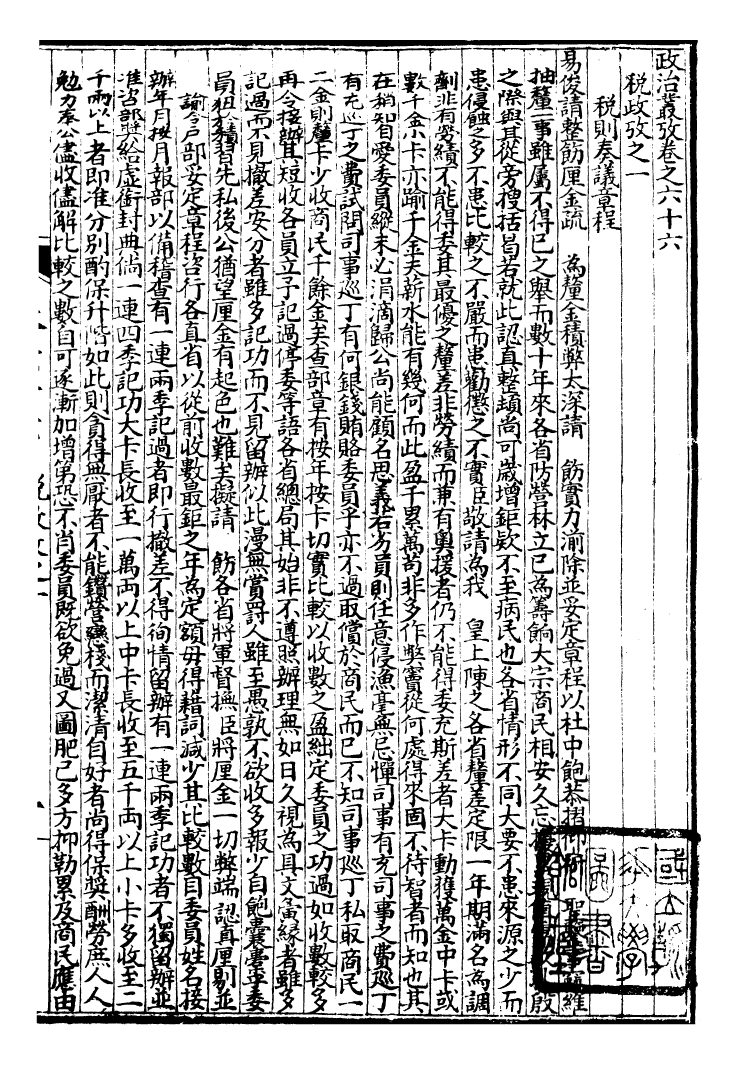 政治叢攷卷之六十六
稅政攷之一
稅則奏議章程
易俊請整筋厘金疏 為釐金積弊太深請 飭實力湔除並妥定章程以杜中飽恭摺仰祈 聖鑒事竊維
抽釐一事雖屬不得已之舉而數十年來各省防營林立已為籌餉大宗商民相安久忘
之際與其從旁搜括曷若就此認真整頓尚可歲增鉅欵不至病民也各省情形不同大要不患來源之少而
患侵蝕之多不患比較之不嚴而患勸懲之不實臣敬請為我 皇上陳之各省釐差定限一年期滿名為調
劑非有勞績不能得委其最優之釐差非勞績而兼有奧援者仍不能得委充斯差者大卡動獲萬金中卡或
數千金小卡亦踰千金夫薪水能有幾何而此盈千累萬苟非多作弊竇從何處得來固不待智者而知也其
在稍知自愛委員縱未必涓滴歸公尚能顧名思義若劣員則任意侵漁毫無忌憚司事有充司事之費巡丁
有充巡丁之費試問司事巡丁有何銀錢賄賂委員乎亦不過取償於商民而已不知司事巡丁私取商民一
二金則釐卡少收商民千餘金矣查部章有按年按卡切實比較以收數之盈絀定委員之功過如收數較多
再令接辦其短收各員立予記過停委等語各省總局其始非不遵照辦理無如日久視為具文夤緣者雖多
記過而不見撤差安分者雖多記功而不見留辦似此漫無賞罰人雖至愚孰不欲收多報少自飽囊橐乎委
員狃於積習先私後公猶望厘金有起色也難矣擬請 飭各省將軍督撫臣將厘金一切弊端認真厘剔並
諭令戶部妥定章程咨行各直省以從前收數最鉅之年為定額毋得藉詞減少其比較數目委員姓名接
辦年月按月報部以備稽查有一連兩季記過者即行撤差不得徇情留辦有一連兩季記功者不獨留辦並
准咨部獎給虛銜封典倘一連四季記功大卡長收至一萬両以上中卡長收至五千両以上小卡多收至二
千兩以上者即准分別酌保升階如此則貪得無厭者不能鑽營戀棧而潔清自好者尚得保獎酬勞庶人人
勉力奉公儘收儘解比較之數自可逐漸加增第恐不肖委員既欲免過又圖肥己多方抑勒累及商民應由